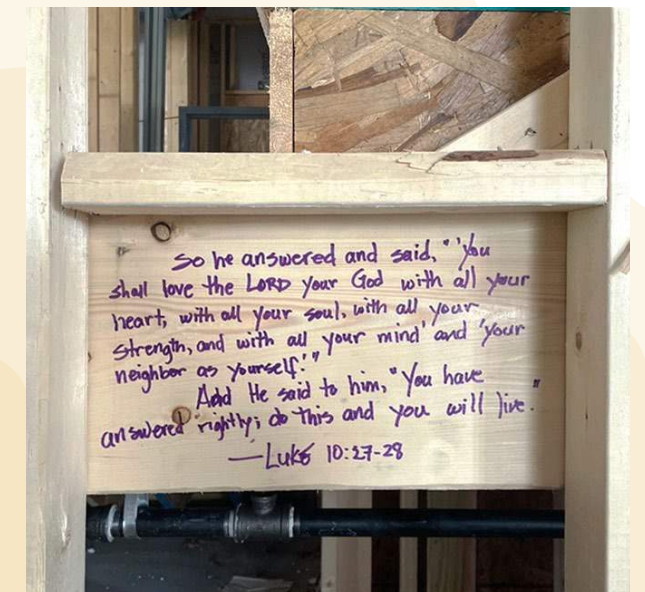 So he answered and said, "'You
shall love the LORD your God with all your
heart, with all your soul, with all your
strength, and with all your mind' and 'your
neighbor as yourself.'"
And He said to him, "You have
answered rightly; do this and you will live."
—Luke 10:27-28